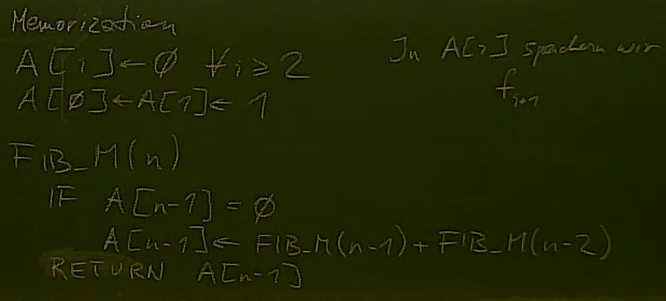 Memorization
A[i]←∅ ∀i≥2
A[∅]←A[1]←1
In A[i] speichern wir
f_{i+1}
FIB_M(n)
IF A[n-1]=∅
A[n-1]←FIB_M(n-1)+FIB_M(n-2)
RETURN A[n-1]